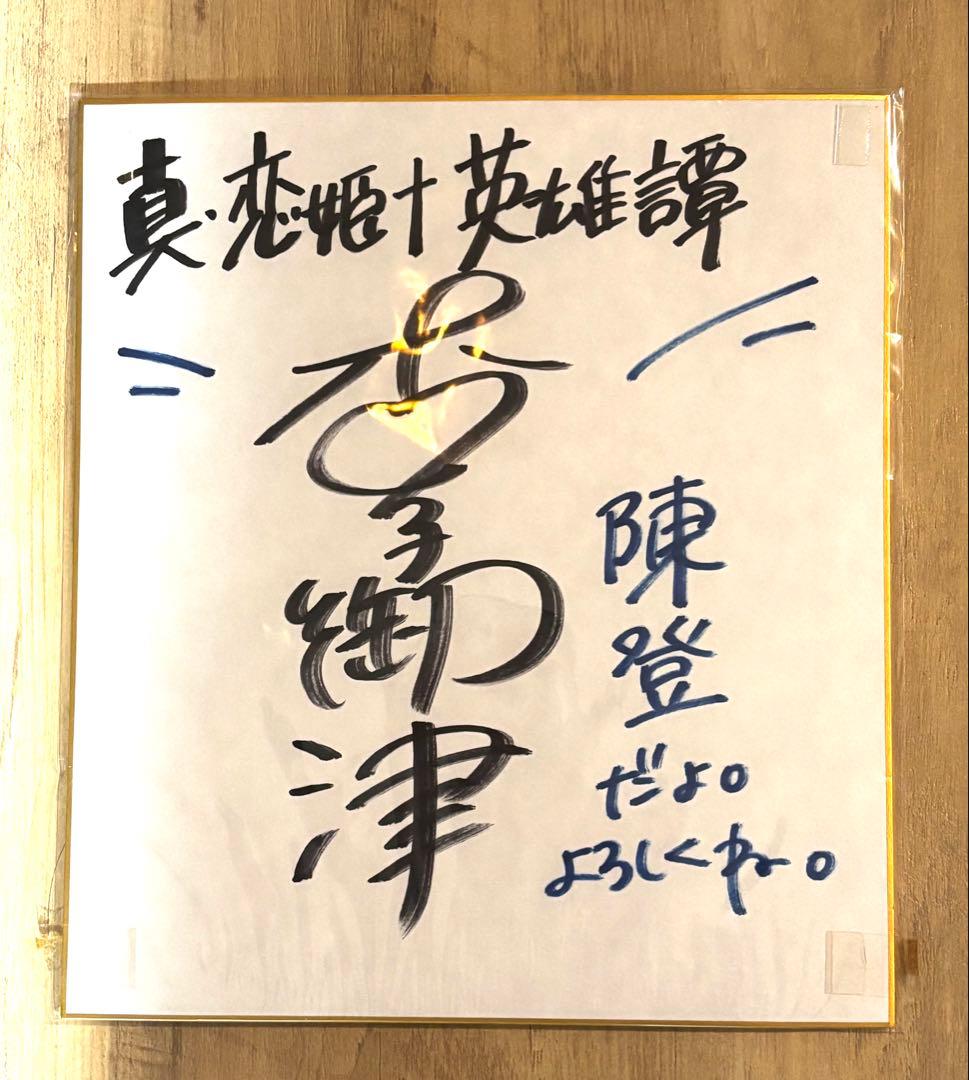 真・恋姫†英雄譚
杏子御津
陳登
だよ。
よろしくね。